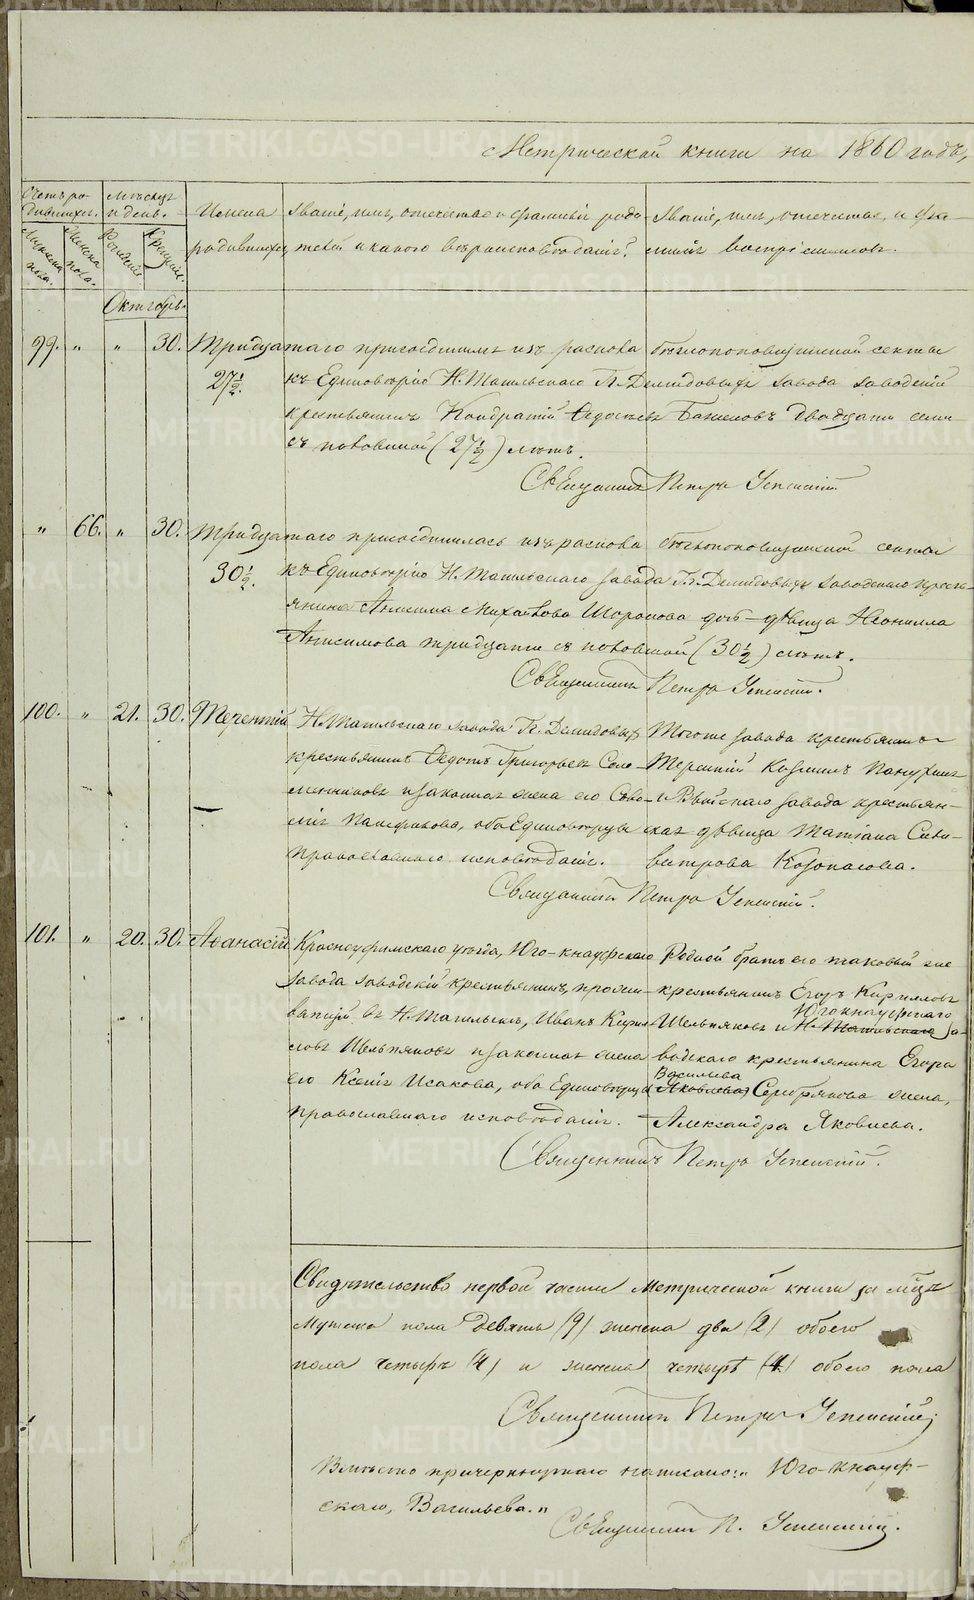 Метрической книги на 1860 годъ,
Счетъ ро-
дившихся.
Мѣсяцъ
и день.
Имена
родившихся,
Званіе, имя, отчество и фамилія роди-
телей и какого вѣроисповѣданія.
Званіе, имя, отчество и фа-
милія воспріемниковъ.
Мужеска
пола.
Женска
пола.
Рожденія
Крещенія.
Октябрь.
99. „ „ 30. Тридцатаго присоединился изъ раскола бѣглопоповщинской секты
27½. къ Единовѣрію Н.Тагильскаго Гг. Демидовыхъ завода заводскій
крестьянинъ Кондратій Ѳедосѣевъ Баженовъ двадцати семи
съ половиной (27½) лѣтъ.
Священникъ Петръ Успенскій
„ 66. „ 30. Тридцатаго присоединилась изъ раскола бѣглопоповщинской секты
30½. къ Единовѣрію Н.Тагильскаго завода Гг. Демидовыхъ заводскаго кресть-
янина Анисима Михайлова дочь дѣвица Неонилла
Анисимова тридцати съ половиной (30½) лѣтъ.
Священникъ Петръ Успенскій.
100. „ 21. 30. Терентій
Н.Тагильскаго завода Гг. Демидовыхъ
крестьянинъ Ѳедотъ Григорьевъ
и законная жена его
оба Единовѣрцы
православнаго исповѣданія.
Тогоже завода крестьянинъ
Терентій Козминъ
и Выйскаго завода крестьян-
ская дѣвица Татіана Сели-
верстрова Колопасова.
Священникъ Петръ Успенскій.
101. „ 20. 30. Аѳанасій
Красноуфимскаго уѣзда, Юго-кнауфскаго
завода заводскій крестьянинъ, прожи-
вающій въ Н.Тагильскѣ, Иванъ Кирил-
ловъ Шельпяковъ и законная жена
его Ксенія Исакова, оба Единовѣрцы
православнаго исповѣданія.
Родной братъ его таковый же
крестьянинъ Егоръ Кирилловъ
Югокнауфскаго
Шельпяковъ и Н.Тагильскаго за-
водскаго крестьянина Егора
Васильева
Яковлева Серебрякова жена,
Александра Яковлева.
Священникъ Петръ Успенскій.
Свидѣтельство первой части Метрической книги за мѣсяцъ
Мужска пола девять (9) женска два (2) обоего
пола четыре (4) и женска четыре (4) обоего пола
Священникъ Петръ Успенскій;
Вмѣсто причеркнутаго написано: „Юго-кнауф-
скаго, Васильева.“
Священникъ П. Успенскій.
METRIKI.GASO-URAL.RU